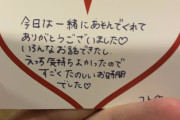 今日は一緒にあそんでくれて
ありがとうございました♡
いろんなお話できたし
えっち気持ちよかったので
すごくたのしいお時間
でした♡